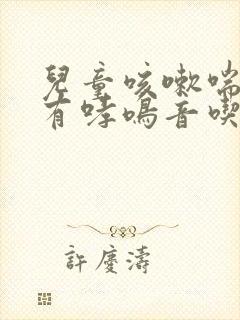 兒童咳嗽喘
有哮鳴音喫
許慶濤